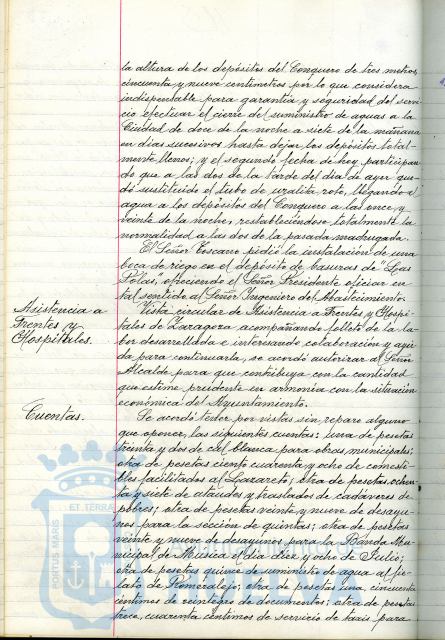 la altura de los depósitos del Conquero de tres metros
cincuenta y nueve centímetros por lo que considera
indispensable para garantía y seguridad del servi-
cio efectuar el cierre del suministro de aguas a la
Ciudad de doce de la noche a siete de la mañana
en días sucesivos hasta dejar los depósitos total-
mente llenos; y el segundo fecha de hoy, participan-
do que a las dos de la tarde del día de ayer que-
dó sustituido el tubo de uralita roto, llegando el
agua a los depósitos del Conquero a las once y
veinte de la noche, restableciéndose totalmente la
normalidad a las dos de la pasada madrugada.
El Señor Toscano pidió la instalación de una
boca de riego en el depósito de basuras de "Las
Polas", ofreciendo el Señor Presidente oficiar en
tal sentido al Señor Ingeniero del Abastecimiento.
Asistencia a
Frentes y
Hospitales.
Vista circular de Asistencia a Frentes y Hospi-
tales de Zaragoza acompañando folleto de la la-
bor desarrollada e interesando colaboración y ayu-
da para continuarla, se acordó autorizar al Señor
Alcalde para que contribuya con la cantidad
que estime prudente en armonía con la situación
económica del Ayuntamiento.
Cuentas.
Se acordó tener por vistas sin reparo alguno
que oponer, las siguientes cuentas: una de pesetas
treinta y dos de cal blanca para obras municipales;
otra de pesetas ciento cuarenta y ocho de comesti-
bles facilitados al Lazareto; otra de pesetas ochen-
ta y siete de ataudes y traslados de cadáveres de
pobres; otra de pesetas veinte y nueve de desayu-
nos para la sección de quintas; otra de pesetas
veinte y nueve de desayunos para la Banda Mu-
nicipal de Música el día diez y ocho de Julio;
otra de pesetas quince de suministro de agua al fie-
lato de Pomeralejo; otra de pesetas una, cincuenta
céntimos de reintegro de documentos; otra de pesetas
trece, cuarenta céntimos de servicio de taxis para
PORTUS MARIS
ET TERRAE